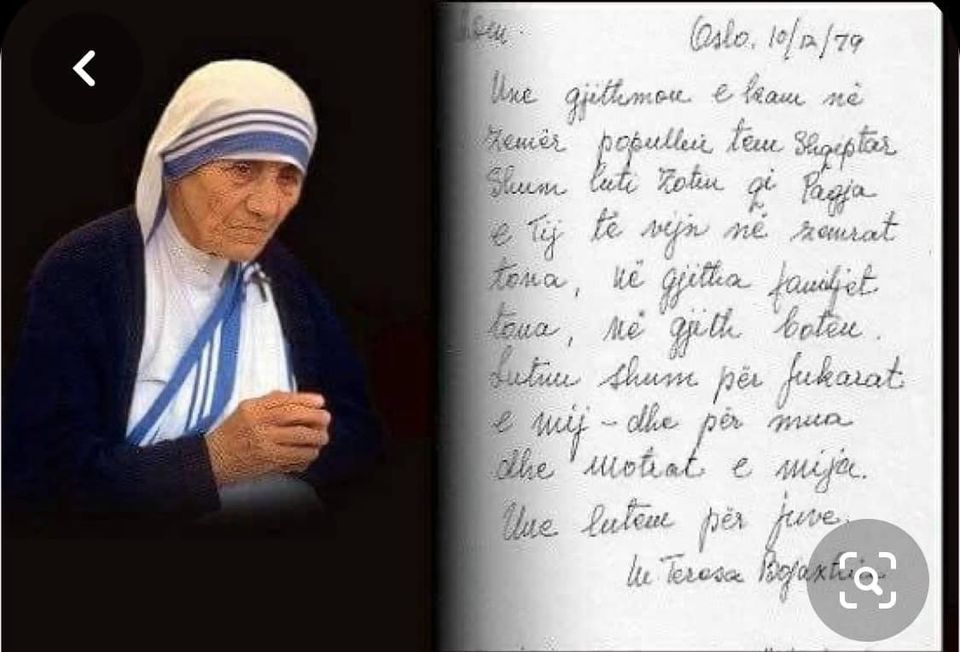 Oslo, 10/12/79
Une gjithmon e kam në
zemër popullin tem Shqiptar
Shum luti Zotin qi Paqja
e Tij të vijn në zemrat
tona, në gjitha familjet
tona, në gjith boten.
Lutnu shum për fukarat
e mij – dhe për mua
dhe motrat e mija.
Une lutem për juve.
M Teresa Bojaxhiu